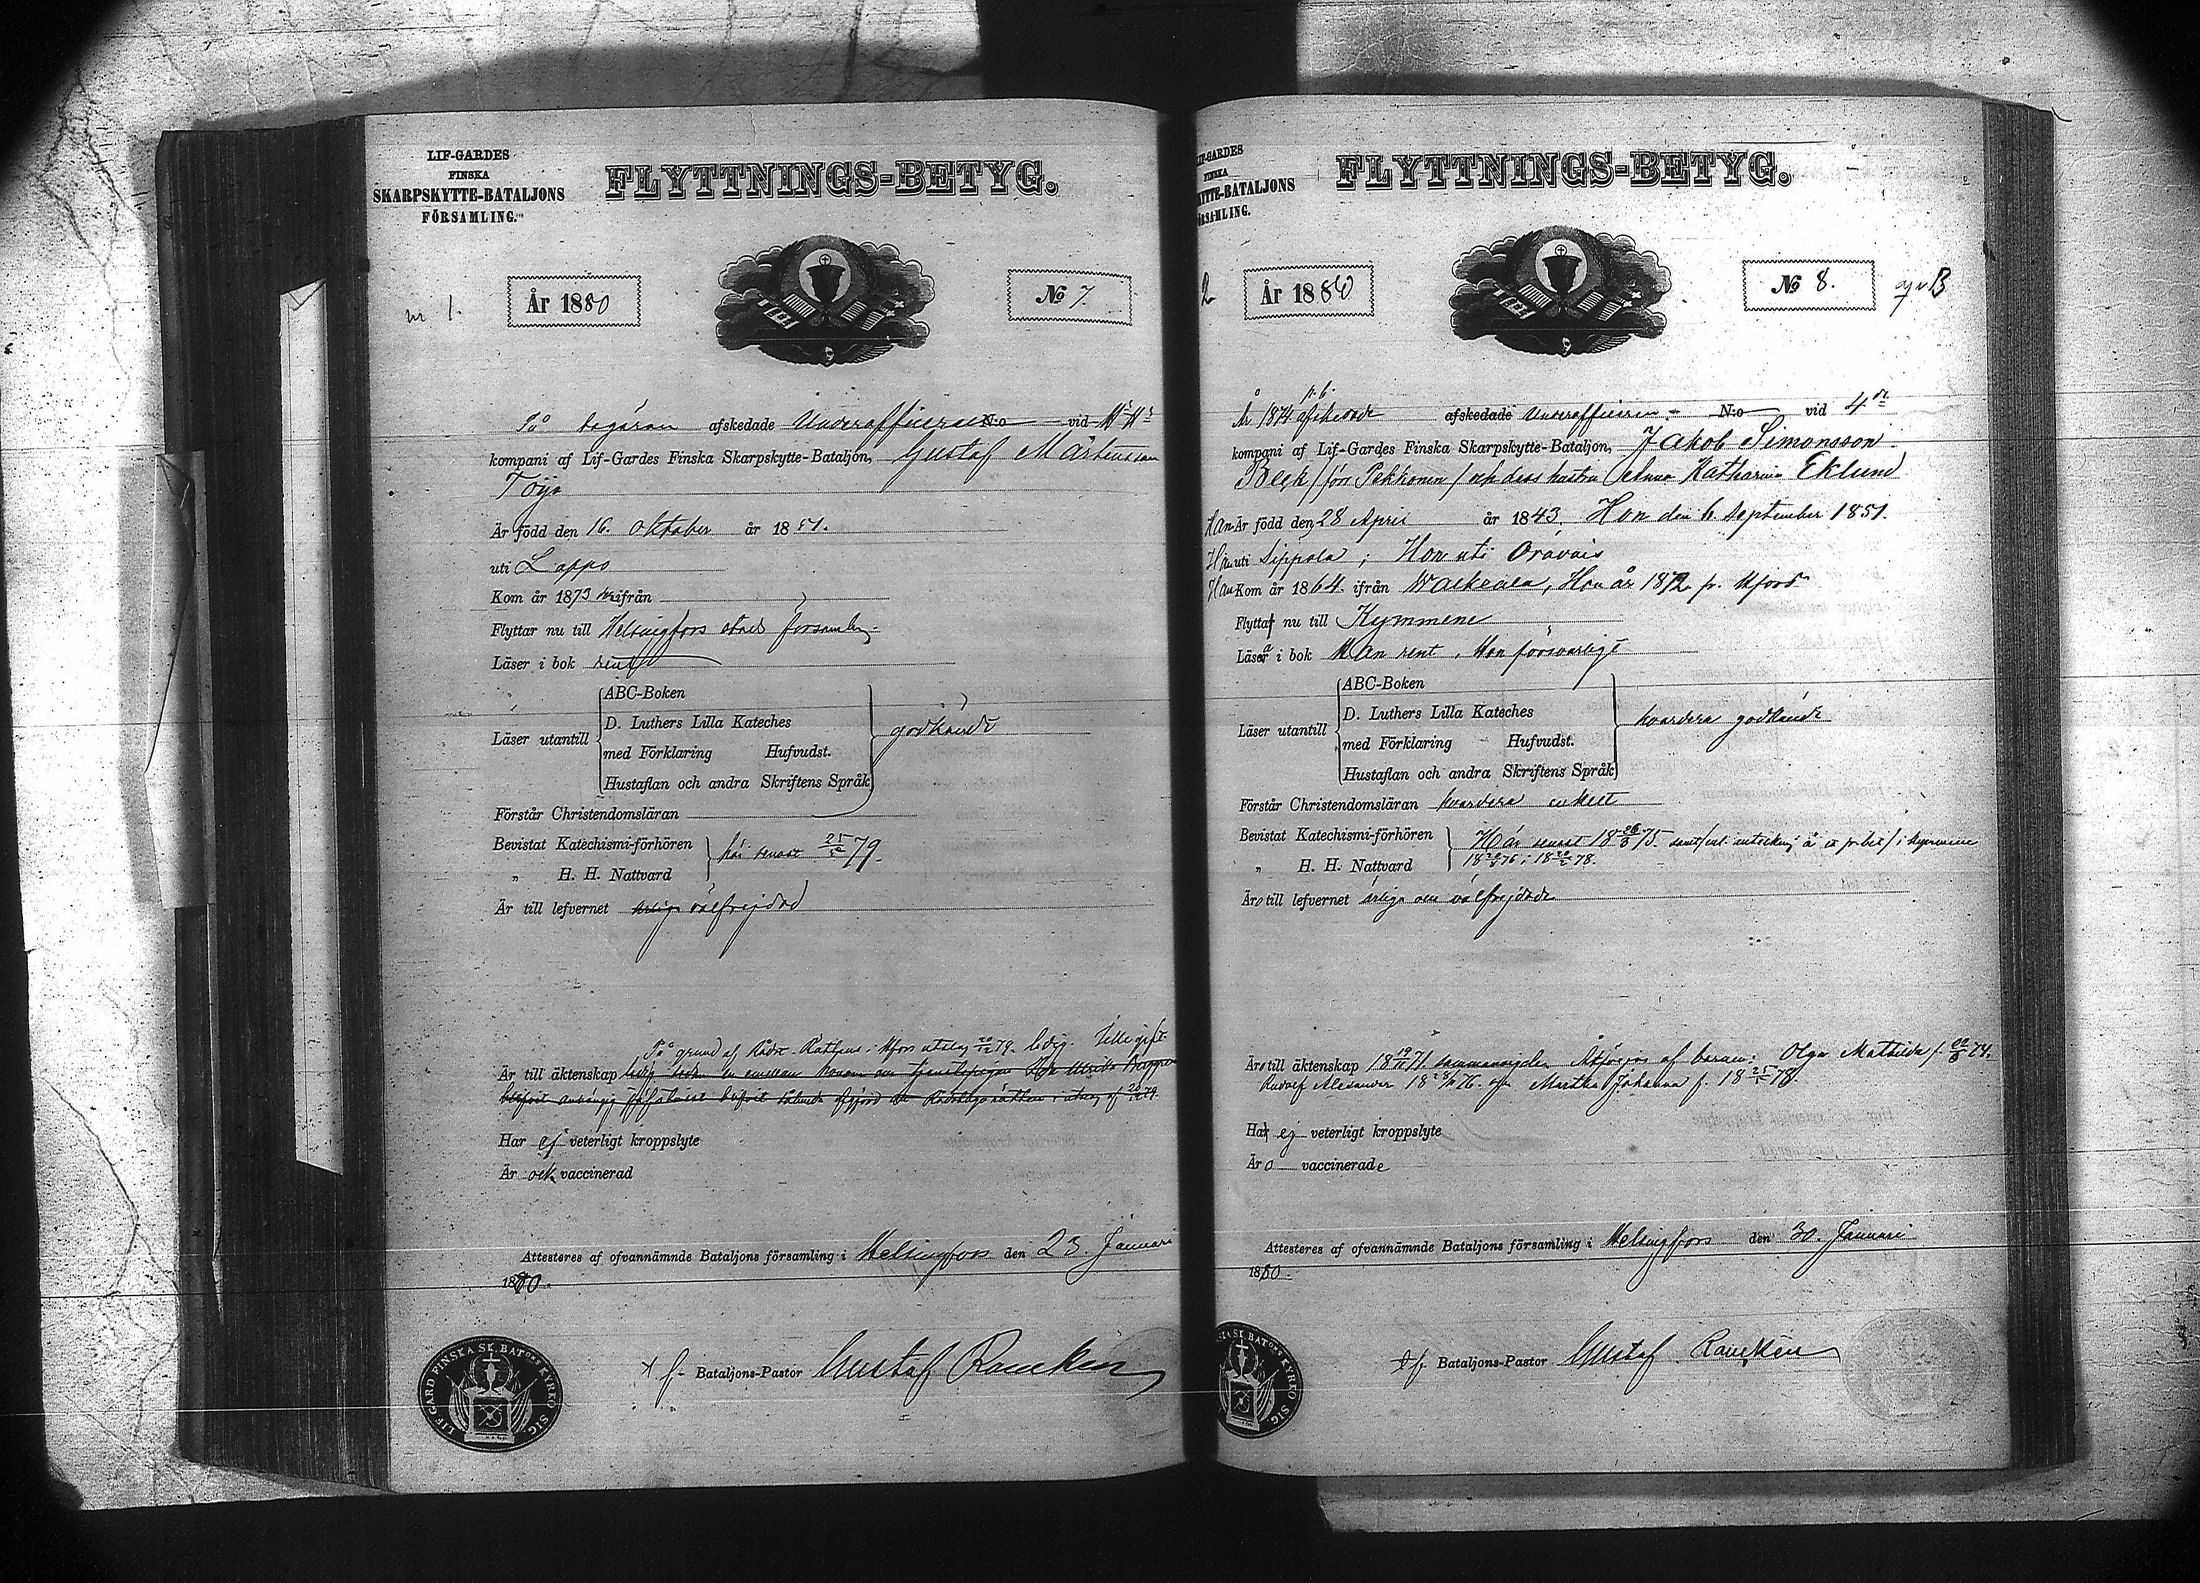 LIF-GARDES
FINSKA
SKARPSKYTTE-BATALJONS
FÖRSAMLING.
FLYTTNINGS-BETYG.
nr 1.
År 1880
No 7.
På begäran afskedade Underofficeren N:o vid
kompani af Lif-Gardes Finska Skarpskytte-Bataljon, Gustaf Mårtensson
Töyr
Är född den 16. Oktober år 1851.
uti Lappo
Kom år 1873 ifrån
Flyttar nu till Helsingfors stads församling.
Läser i bok rent
Läser utantill
ABC-Boken
D. Luthers Lilla Kateches
med Förklaring Hufvudst.
Hustaflan och andra Skriftens Språk
godkändt
Förstår Christendomsläran
Bevistat Katechismi-förhören
„ H. H. Nattvard
här senast 79.
Är till lefvernet ärlig välfrejdad
På grund af utslag 79. ledig. Till gift.
Är till äktenskap ledig
Har ej veterligt kroppslyte
Är och vaccinerad
Attesteras af ofvannämnde Bataljons församling i Helsingfors den 23. Januari
1880.
Bataljons-Pastor Gustaf Rancken
LIF GARD FINSKA SK. BATons KYRKO SIG.
LIF-GARDES
FINSKA
SKYTTE-BATALJONS
FÖRSAMLING.
FLYTTNINGS-BETYG.
2
År 1880
No 8.
År 1874 afskedade afskedade Underofficeren N:o vid 4de
kompani af Lif-Gardes Finska Skarpskytte-Bataljon, Jakob Simonsson
Beck / förr Pekkonen / och dess hustru Anna Katharina Eklund
Han Är född den 28 April år 1843. Hon den 6 September 1851.
Han uti Sippola; Hon uti Oravais
Han Kom år 1864. ifrån Walkeala, Hon år 1872 fr. Hfors
Flytta nu till Kymmene
Läsa i bok Han rent, Hon försvarligt
Läser utantill
ABC-Boken
D. Luthers Lilla Kateches
med Förklaring Hufvudst.
Hustaflan och andra Skriftens Språk
hvardera godkände
Förstår Christendomsläran hvardera enkelt
Bevistat Katechismi-förhören
„ H. H. Nattvard
Här senast 1875.
Äro till lefvernet ärliga och välfrejdade
Äro till äktenskap 1871 sammanvigda. Åtföljas af barnen: Olga Mathilda f. 74.
Rudolf Alexander 1876. och Martha Johanna f. 1878.
Ha ej veterligt kroppslyte
Äro vaccinerade
Attesteras af ofvannämnde Bataljons församling i Helsingfors den 30. Januari
1880.
Bataljons-Pastor Gustaf Rancken
SK. BATons KYRKO SIG.